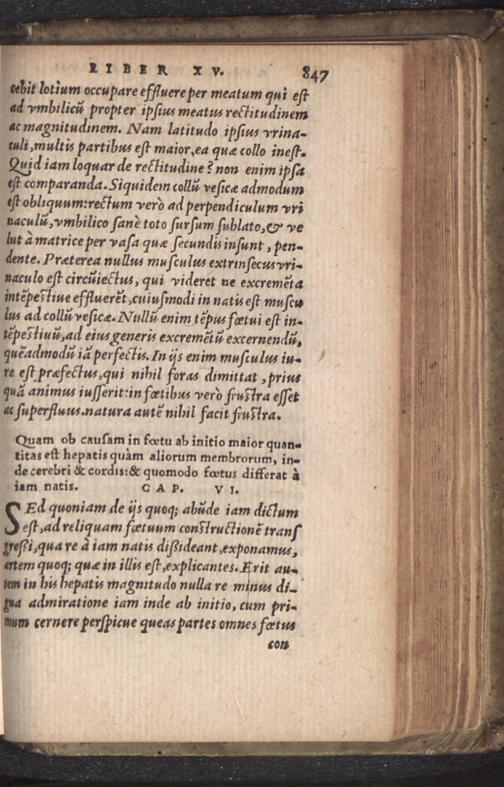 LIBER XV. 847
cebit lotium occupare effluere per meatum qui est
ad vmbilicũ propter ipsius meatus rectitudinem
ac magnitudinem. Nam latitudo ipsius vrina-
culi, multis partibus est maior, ea quæ collo inest.
Quid iam loquar de rectitudine? non enim ipsa
est comparanda. Siquidem collũ vesicæ admodum
est obliquum: rectum verò ad perpendiculum vri
naculũ, vmbilico sanè toto sursum sublato, & ve
lut à matrice per vasa quæ secundis insunt, pen-
dente. Præterea nullus musculus extrinsecus vri-
naculo est circũiectus, qui videret ne excremẽta
intẽpestiue effluerẽt, cuiusmodi in natis est muscu
lus ad collũ vesicæ. Nullũ enim tẽpus fœtui est in-
tẽpestiuũ, ad eius generis excremẽtũ excernendũ,
quẽadmodũ iã perfectis. In ijs enim musculus iu-
re est præfectus, qui nihil foras dimittat, prius
quã animus iusserit: in fœtibus verò frustra esset
ac superfluus. natura autẽ nihil facit frustra.
Quam ob causam in fœtu ab initio maior quan-
titas est hepatis quàm aliorum membrorum, in-
de cerebri & cordis: & quomodo fœtus differat à
iam natis. CAP. VI.
SEd quoniam de ijs quoq; abũde iam dictum
est, ad reliquam fœtuum constructionẽ transf
gressi, qua re à iam natis dissideant, exponamus,
artem quoq; quæ in illis est, explicantes. Erit au-
tem in his hepatis magnitudo nulla re minus di-
gna admiratione iam inde ab initio, cum pri-
mum cernere perspicue queas partes omnes fœtus
con